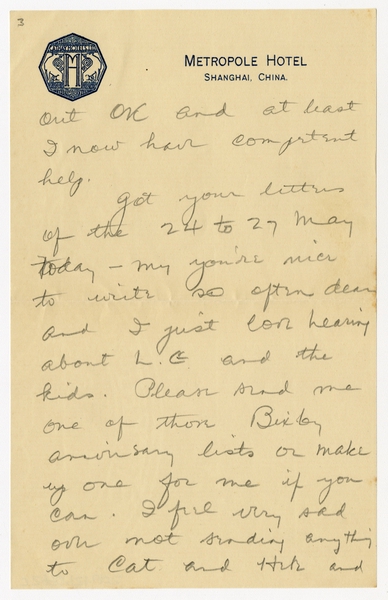 3
CATHAY HOTELS LTD
METROPOLE HOTEL
SHANGHAI, CHINA.
out OK and at least
I now have competent
help.
Got your letters
of the 24 to 27 May
Today - my you're nice
to write so often dear
and I just love hearing
about L.C. and the
kids. Please send me
one of those Bixby
anniversary lists or make
up one for me if you
can. I feel very sad
over not sending anything
to Cat. and and